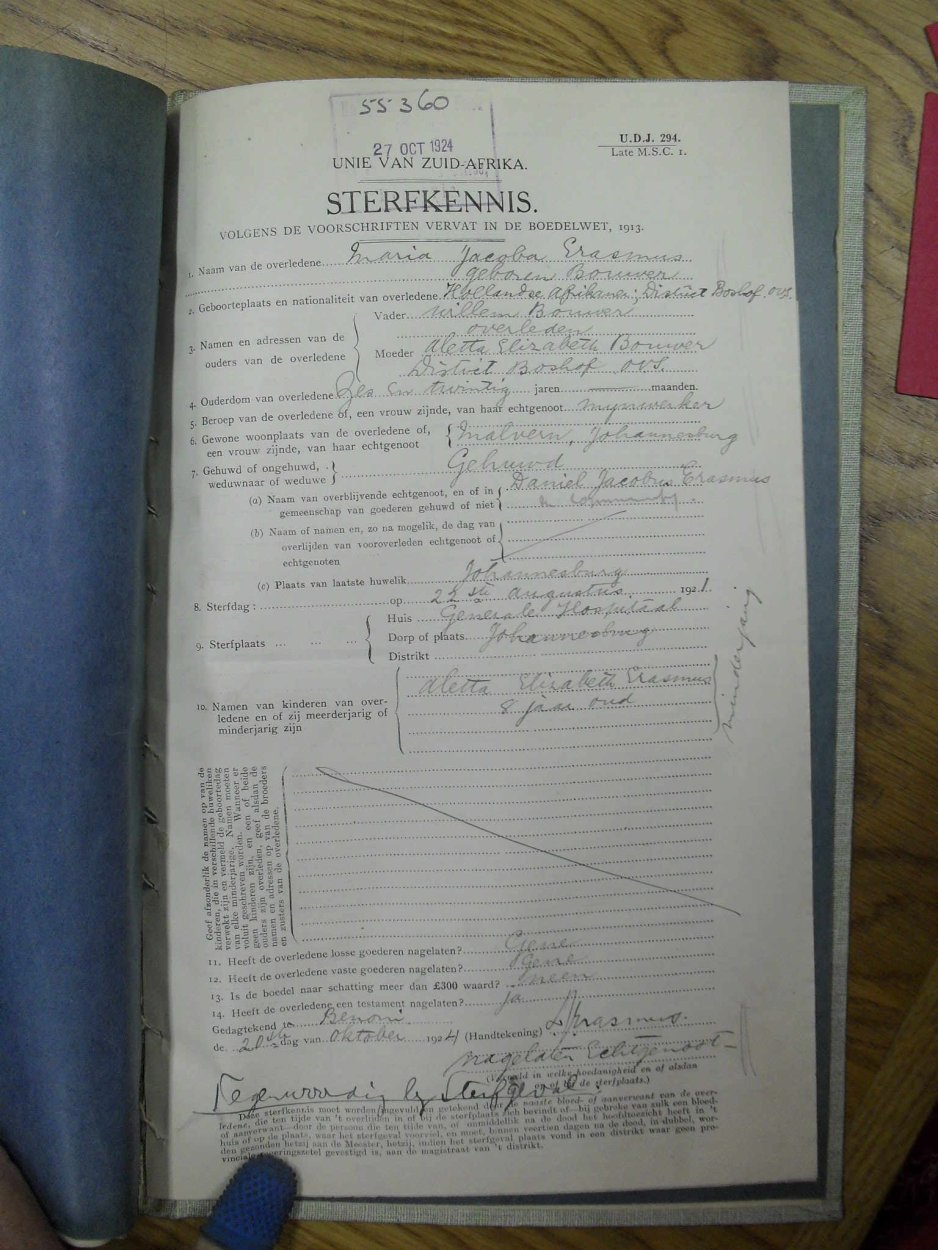 55360
27 OCT 1924
U.D.J. 294.
Late M.S.C. 1.
UNIE VAN ZUID-AFRIKA.
STERFKENNIS.
VOLGENS DE VOORSCHRIFTEN VERVAT IN DE BOEDELWET, 1913.
1. Naam van de overledene Maria Jacoba Erasmus
geboren Bouwer
2. Geboorteplaats en nationaliteit van overledene Hollandse Afrikaner; District Boshof OVS.
3. Namen en adressen van de ouders van de overledene
Vader Willem Bouwer
overleden
Moeder Aletta Elizabeth Bouwer
District Boshof OVS.
4. Ouderdom van overledene Zes en twintig jaren — maanden.
5. Beroep van de overledene of, een vrouw zijnde, van haar echtgenoot mynwerker
6. Gewone woonplaats van de overledene of,
een vrouw zijnde, van haar echtgenoot Malvern, Johannesburg
7. Gehuwd of ongehuwd,
weduwnaar of weduwe Gehuwd
(a) Naam van overblijvende echtgenoot, en of in
gemeenschap van goederen gehuwd of niet
Daniel Jacobus Erasmus
(b) Naam of namen en, zo na mogelik, de dag van
overlijden van vooroverleden echtgenoot of
echtgenoten
(c) Plaats van laatste huwelik Johannesburg
8. Sterfdag: op 22ste Augustus 1921
9. Sterfplaats ... ... ...
Huis Generale Hospitaal
Dorp of plaats Johannesburg
Distrikt
10. Namen van kinderen van over-
ledene en of zij meerderjarig of
minderjarig zijn
Aletta Elizabeth Erasmus
8 jaar oud
minderjarig
Geef afsonderlik de namen op van de
kinderen, die in verschillende huweliken
verwekt zijn en vermeld de geboortedag
van elke minderjarige. Namen moeten
voluit geschreven worden. Wanneer er
geen kinderen zijn, en een of beide
ouders zijn overleden, geef alsdan de
namen en adressen op van de broeders
en zusters van de overledene.
11. Heeft de overledene losse goederen nagelaten? Gene
12. Heeft de overledene vaste goederen nagelaten? Gene
13. Is de boedel naar schatting meer dan £300 waard? neen
14. Heeft de overledene een testament nagelaten? ja
Gedagtekend te Benoni
de 20ste dag van Oktober 1924 (Handtekening) Erasmus.
nagelaten Echtgenoot
(Vermeld in welke hoedanigheid en of alsdan
en of bij de sterfplaats.)
Tegenwoordig by sterfgeval
Deze sterfkennis moet worden ingevuld en getekend door de naaste bloed- of aanverwant van de over-
ledene, die ten tijde van 't overlijden in of bij de sterfplaats zich bevindt of—bij gebreke van zulk een bloed-
of aanverwant—door de persoon die ten tijde van, of onmiddellik na de dood het hoofdtoezicht heeft in 't
huis of op de plaats, waar het sterfgeval voorviel, en moet, binnen veertien dagen na de dood, in dubbel, wor-
den gezonden hetzij aan de Meester, hetzij, indien het sterfgeval plaats vond in een distrikt waar geen pro-
vinciale regeringszetel gevestigd is, aan de magistraat van 't distrikt.